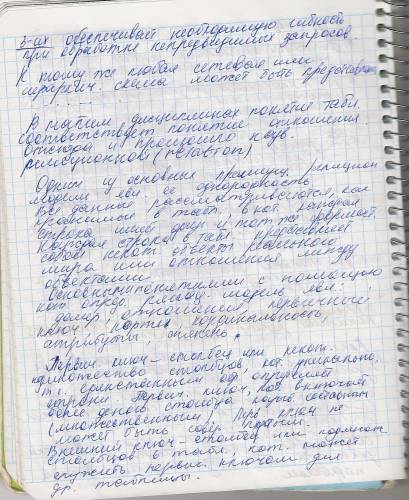 3-их обеспечивает необходимую гибкость
при обработке непредвидимых запросов
К тому же любая сетевая или
иерархич. схема может быть представлена
В матем дисциплинах понятие табл.
соответствует понятие отношения
Отсюда и произошло назв.
реляционной (relation)
Одним из основных преимущ. реляцион
модели явл. ее однородность.
Все данные рассматриваются, как
хранимые в табл. в кот. каждая
строка имеет один и тот же формат.
Каждая строка в табл. представляет
собой некот. объект реального
мира или отношения между
объектами.
Основными понятиями с помощью
кот. опред. реляц. модель явл:
домен, отношения, первичный
ключ, кортеж, кардинальность,
атрибуты, степень.
Первич. ключ – столбец или некот.
подмножество столбцов, кот. уникально,
т.е. единственным обр. определяет
строки. Первич. ключ, кот. включает
более одного столбца назыв. составным
(множественным). Перв ключ не
может быть совер. пустым.
Внешний ключ – столбец или
столбцов в табл., кот. может
служить первич. ключом для
др. таблицы.